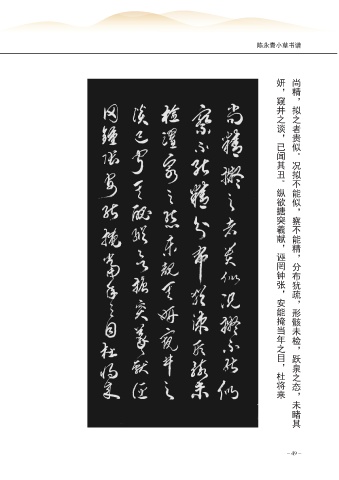 陈永贵小草书谱
尚精，拟之者贵似，况拟不能似，察不能精，分布犹疏，形骸未检，跃泉之态，未睹其
妍，窥井之谈，已闻其丑、纵欲搪突羲献，诬罔钟张，安能掩当年之目，杜将来
尚精擬之者貴似況擬不能似
察不能精分布猶疎形骸未
檢躍泉之態未覩其妍窺井之
談已聞其醜縱欲搪突羲獻誣
罔鍾張安能掩當年之目杜將來
- 49 -